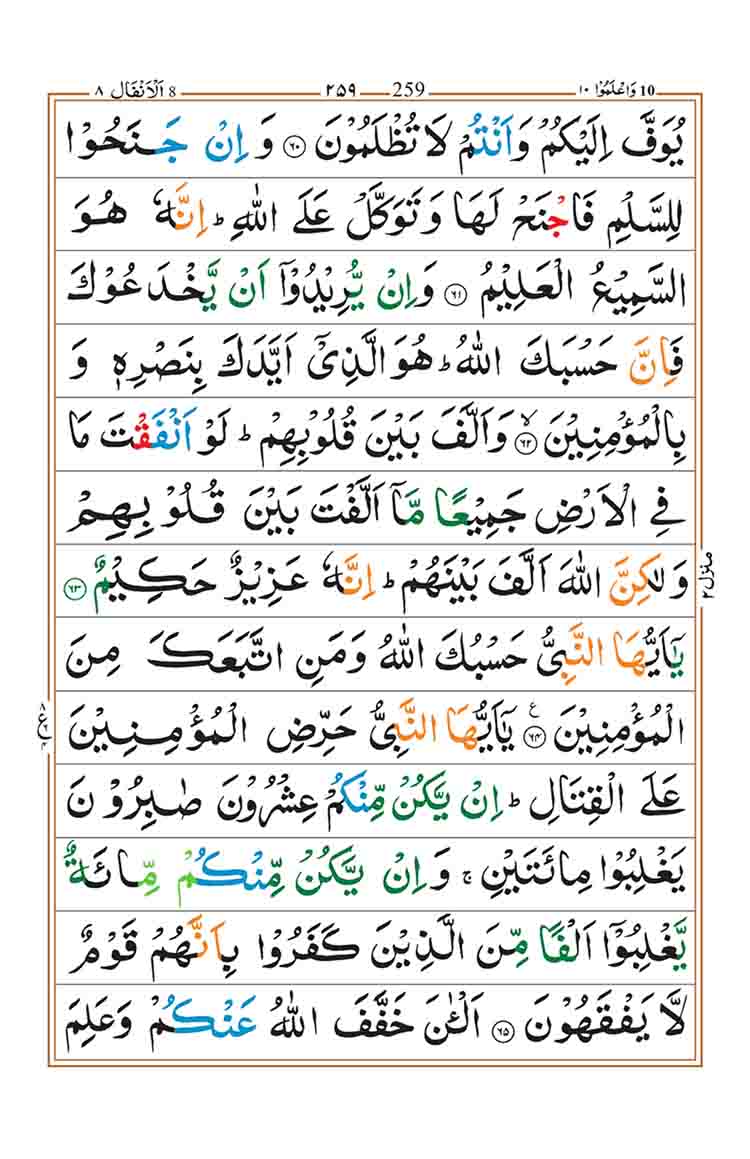 10 وَاعْلَمُوْٓا ١٠ 259 ٢٥٩ 8 اَلْاَنْفَال ٨
يُوَفَّ اِلَيْكُمْ وَاَنْتُمْ لَا تُظْلَمُوْنَ ﴿٦٠﴾ وَ اِنْ جَنَحُوْا
لِلسَّلْمِ فَاجْنَحْ لَهَا وَتَوَكَّلْ عَلَى اللّٰهِ ؕ اِنَّهٗ هُوَ
السَّمِيْعُ الْعَلِيْمُ ﴿٦١﴾ وَاِنْ يُّرِيْدُوْٓا اَنْ يَّخْدَعُوْكَ
فَاِنَّ حَسْبَكَ اللّٰهُ ؕ هُوَ الَّذِيْٓ اَيَّدَكَ بِنَصْرِهٖ وَ
بِالْمُؤْمِنِيْنَ ۙ﴿٦٢﴾ وَاَلَّفَ بَيْنَ قُلُوْبِهِمْ ؕ لَوْ اَنْفَقْتَ مَا
فِى الْاَرْضِ جَمِيْعًا مَّآ اَلَّفْتَ بَيْنَ قُلُوْبِهِمْ
وَلٰكِنَّ اللّٰهَ اَلَّفَ بَيْنَهُمْ ؕ اِنَّهٗ عَزِيْزٌ حَكِيْمٌ ﴿٦٣﴾
يٰٓاَيُّهَا النَّبِىُّ حَسْبُكَ اللّٰهُ وَمَنِ اتَّبَعَكَ مِنَ
الْمُؤْمِنِيْنَ ﴿٦٤﴾ ع يٰٓاَيُّهَا النَّبِىُّ حَرِّضِ الْمُؤْمِنِيْنَ
عَلَى الْقِتَالِ ؕ اِنْ يَّكُنْ مِّنْكُمْ عِشْرُوْنَ صٰبِرُوْنَ
يَغْلِبُوْا مِائَتَيْنِ ۚ وَاِنْ يَّكُنْ مِّنْكُمْ مِّائَةٌ
يَّغْلِبُوْٓا اَلْفًا مِّنَ الَّذِيْنَ كَفَرُوْا بِاَنَّهُمْ قَوْمٌ
لَّا يَفْقَهُوْنَ ﴿٦٥﴾ اَلْـٰٔنَ خَفَّفَ اللّٰهُ عَنْكُمْ وَعَلِمَ
منزل ٢